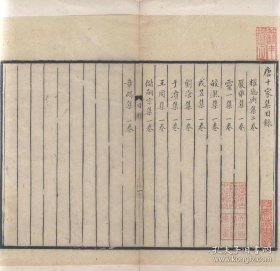 唐十家集目錄
權德輿集二卷
嚴維集一卷
靈一集一卷
皎然集一卷
戎昱集一卷
劉滄集一卷
于濆集一卷
王周集一卷
目錄
儲嗣宗集一卷
章碣集一卷